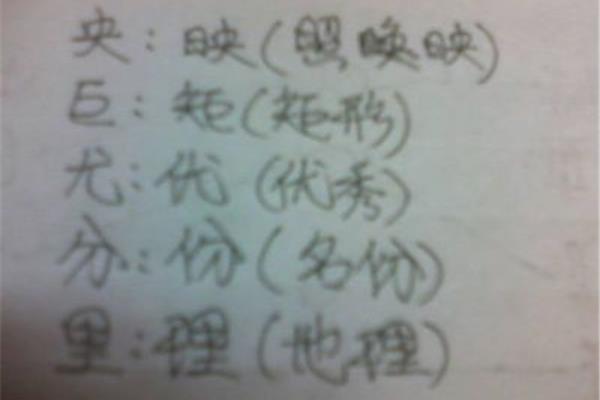 央:映(照映)
巨:矩(矩形)
尤:优(优秀)
分:份(名份)
里:理(地理)